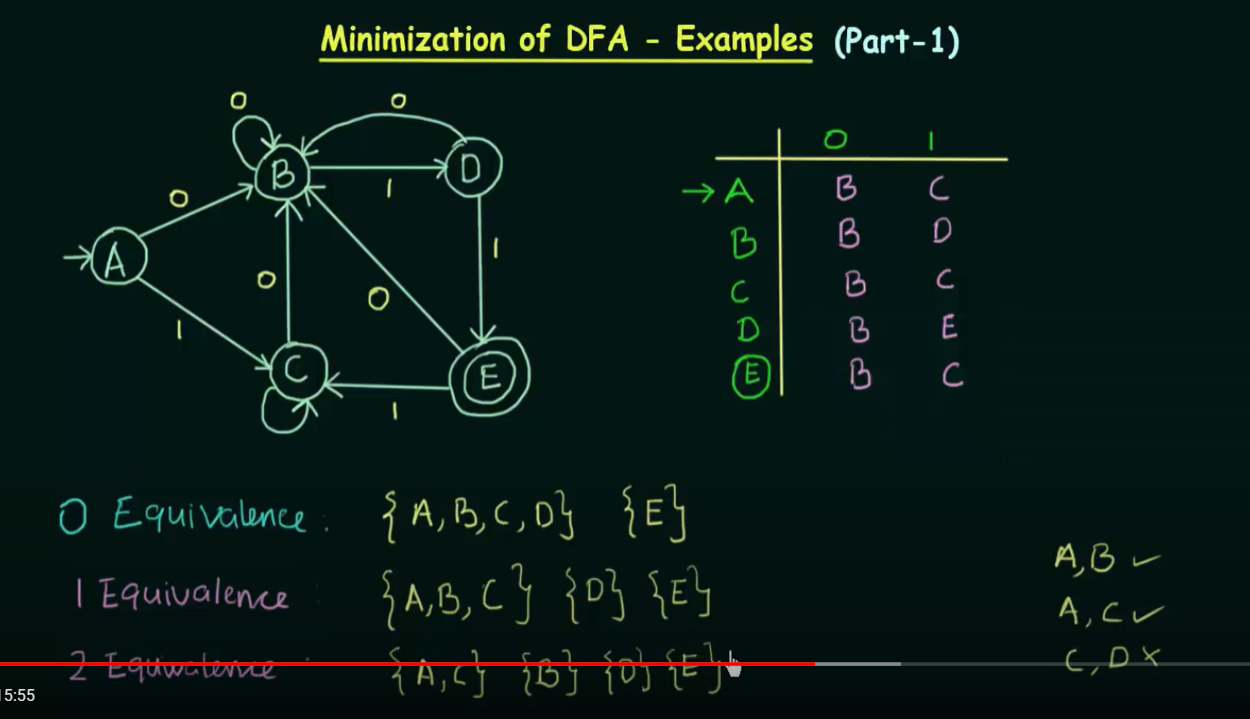 Minimization of DFA - Examples (Part-1)
0
0
B
1
D
0
A
1
0
0
1
C
1
E
0 1
→ A B C
B B D
C B C
D B E
E B C
0 Equivalence : {A, B, C, D} {E}
1 Equivalence : {A, B, C} {D} {E}
2 Equivalence : {A, C} {B} {D} {E}
A, B ✓
A, C ✓
C, D ×
5:55